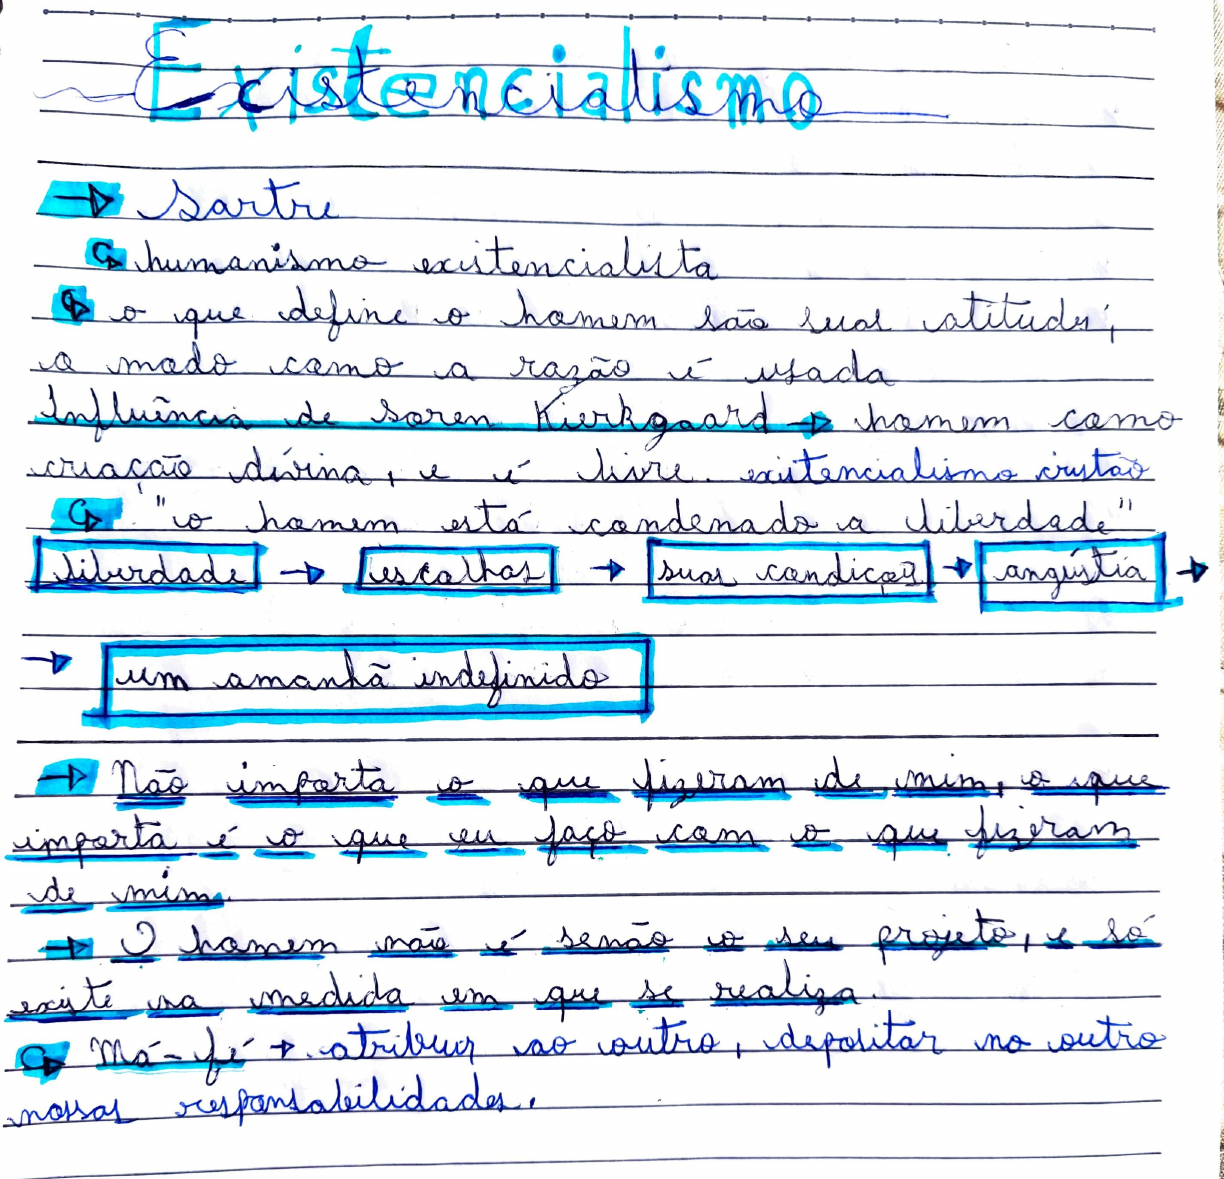 Existencialismo
→ Sartre
↳ humanismo existencialista
↳ o que define o homem são suas atitudes,
o modo como a razão é usada
Influência de Soren Kierkgaard → homem como
criação divina, e é livre. existencialismo cristão
↳ "o homem está condenado a liberdade"
liberdade → escolhas → suas condições → angústia →
→ um amanhã indefinido
→ Não importa o que fizeram de mim, o que
importa é o que eu faço com o que fizeram
de mim.
→ O homem não é senão o seu projeto, e só
existe na medida em que se realiza.
↳ Má-fé → atribuir ao outro, depositar no outro
nossas responsabilidades.